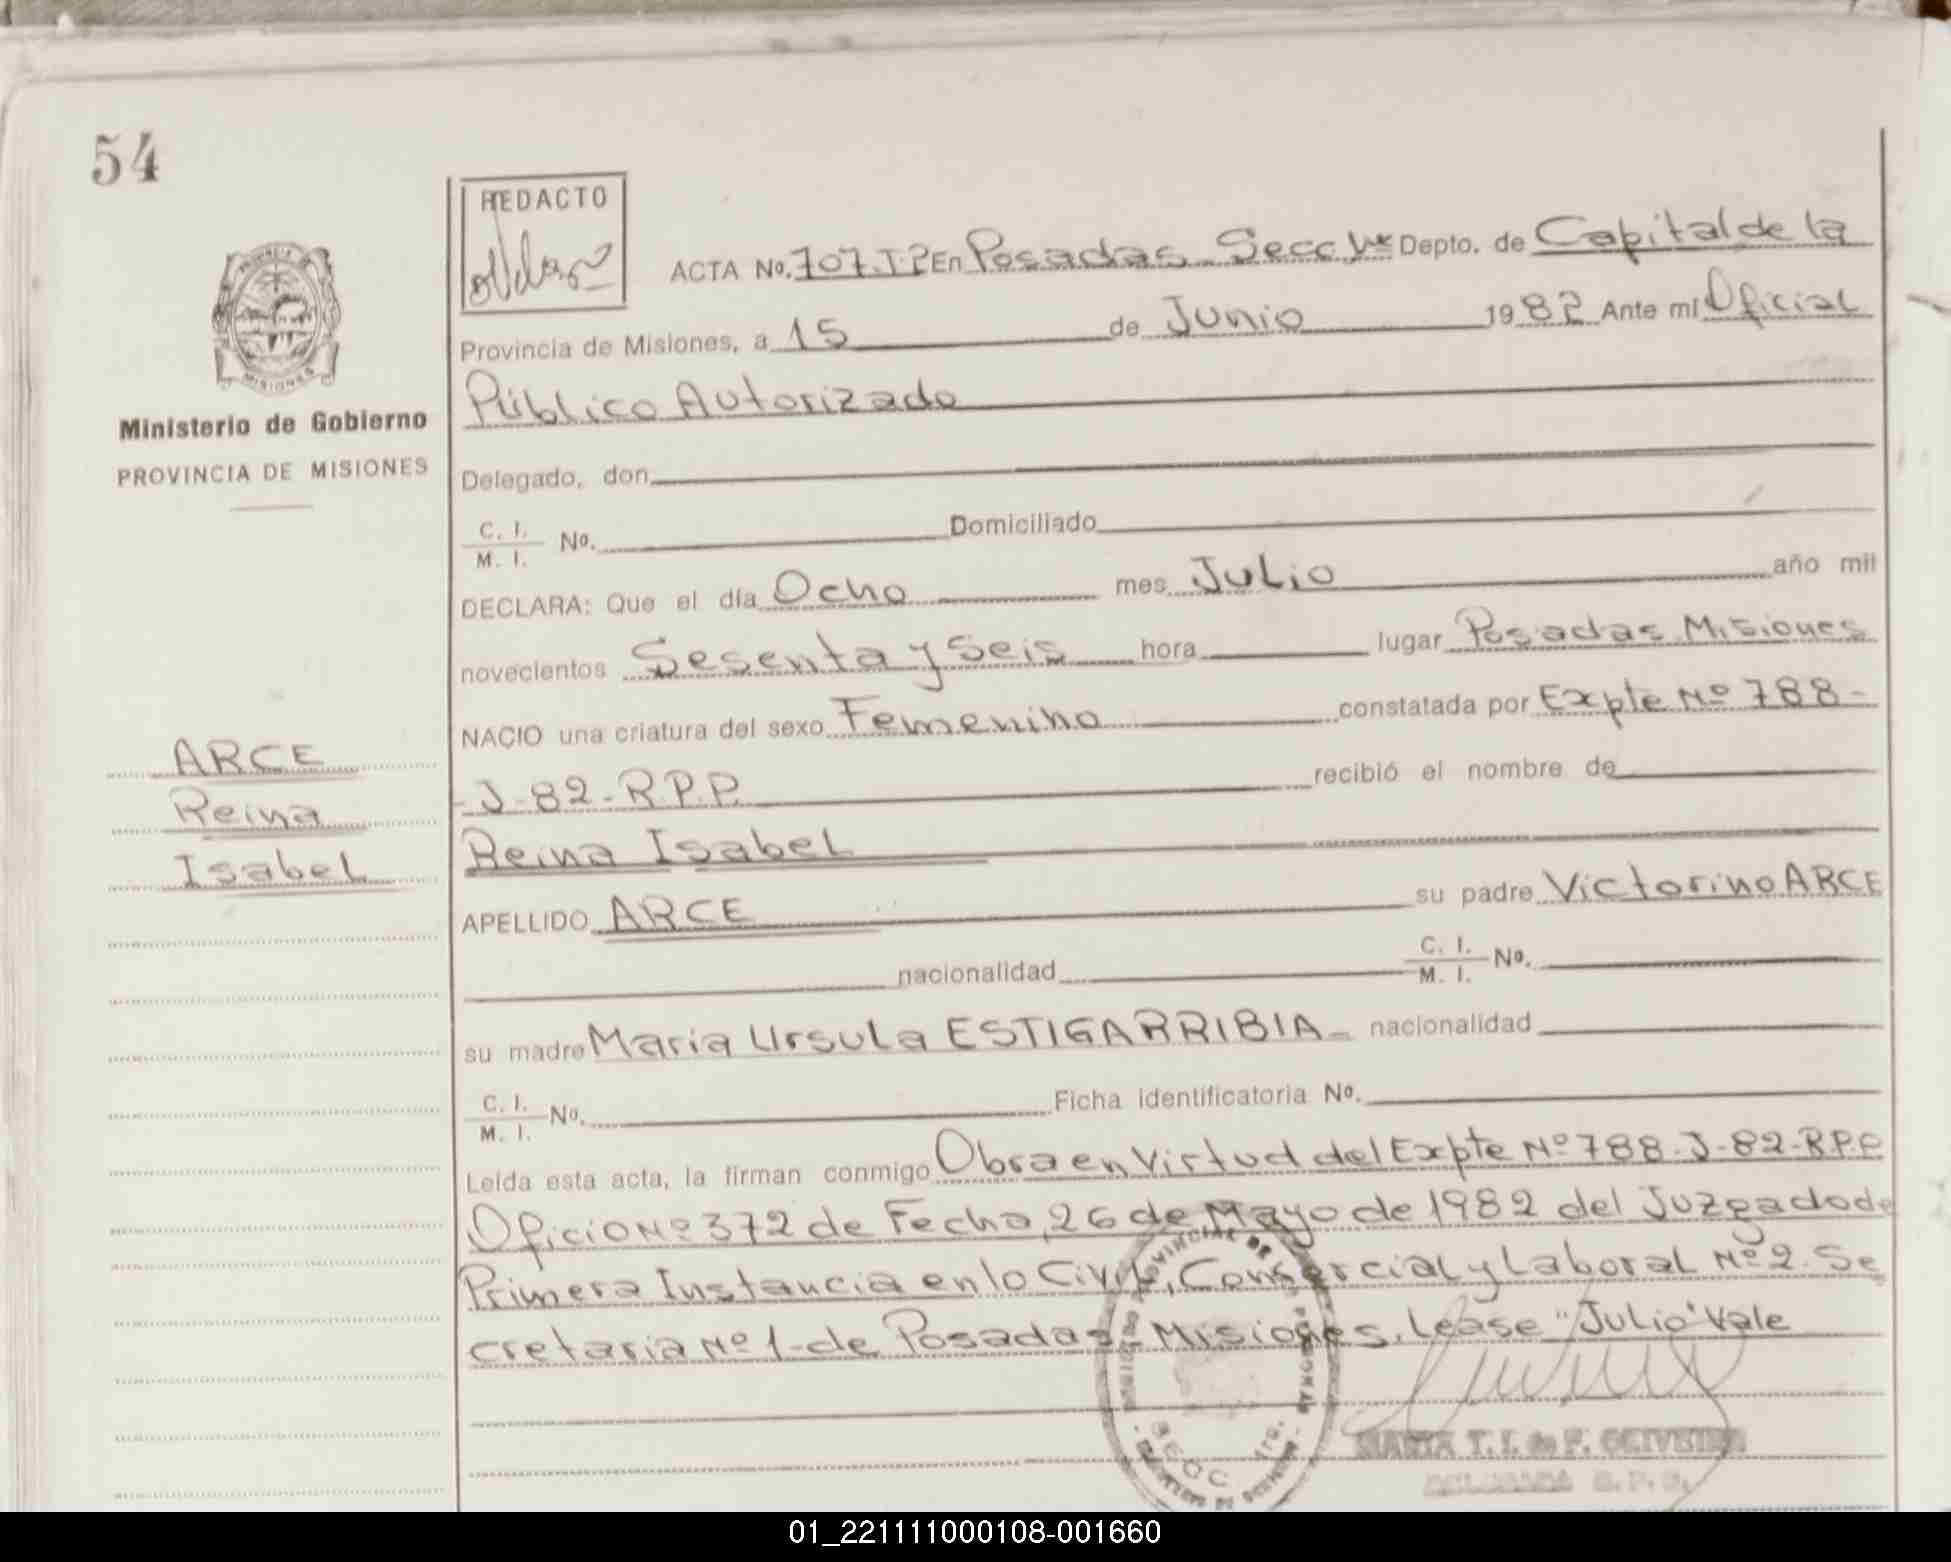 54
REDACTO
ACTA No. 707.T.P En Posadas Secc 1ra Depto. de Capital de la
Provincia de Misiones, a 15 de Junio 1982 Ante mí Oficial
Público Autorizado
Delegado, don
C. I.
M. I. No. Domiciliado
DECLARA: Que el día Ocho mes Julio año mil
novecientos Sesenta y Seis hora lugar Posadas Misiones
NACIO una criatura del sexo Femenino constatada por Expte Nº 788-
-J-82-R.P.P. recibió el nombre de
Reina Isabel
APELLIDO ARCE su padre Victorino ARCE
nacionalidad C. I.
M. I. No.
su madre Maria Ursula ESTIGARRIBIA nacionalidad
C. I.
M. I. No. Ficha identificatoria No.
Leída esta acta, la firman conmigo Obra en Virtud del Expte Nº 788-J-82-R.P.P
Oficio Nº 372 de Fecha, 26 de Mayo de 1982 del Juzgado de
Primera Instancia en lo Civil, Comercial y Laboral Nº 2. Se
cretaria Nº 1-de Posadas-Misiones. Lease "Julio" Vale
MARIA T. I. de F. OLIVEIRA
MISIONES
Ministerio de Gobierno
PROVINCIA DE MISIONES
ARCE
Reina
Isabel
01_221111000108-001660